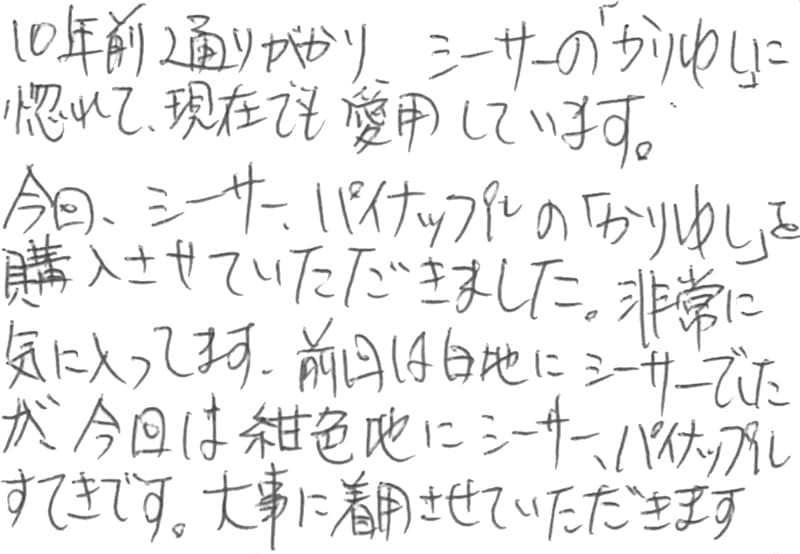 10年前通りがかり シーサーの「かりゆし」に
惚れて、現在でも愛用しています。
今回、シーサー、パイナップルの「かりゆし」を
購入させていただきました。非常に
気に入ってます。前回は白地にシーサーでした
が、今回は紺色地にシーサー、パイナップル
すてきです。大事に着用させていただきます